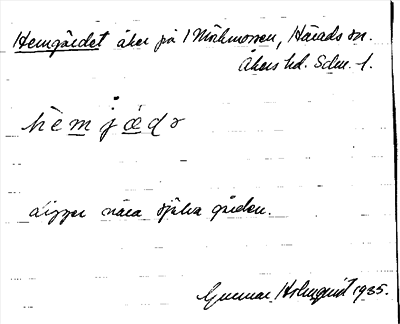 Hemgärdet åker på 1 Mörkmossen, Härads sn.
Åkers hd. Sdm. l.
hèmjǻdə
Ligger nära själva gården.
Gunnar Holmquist 1935.